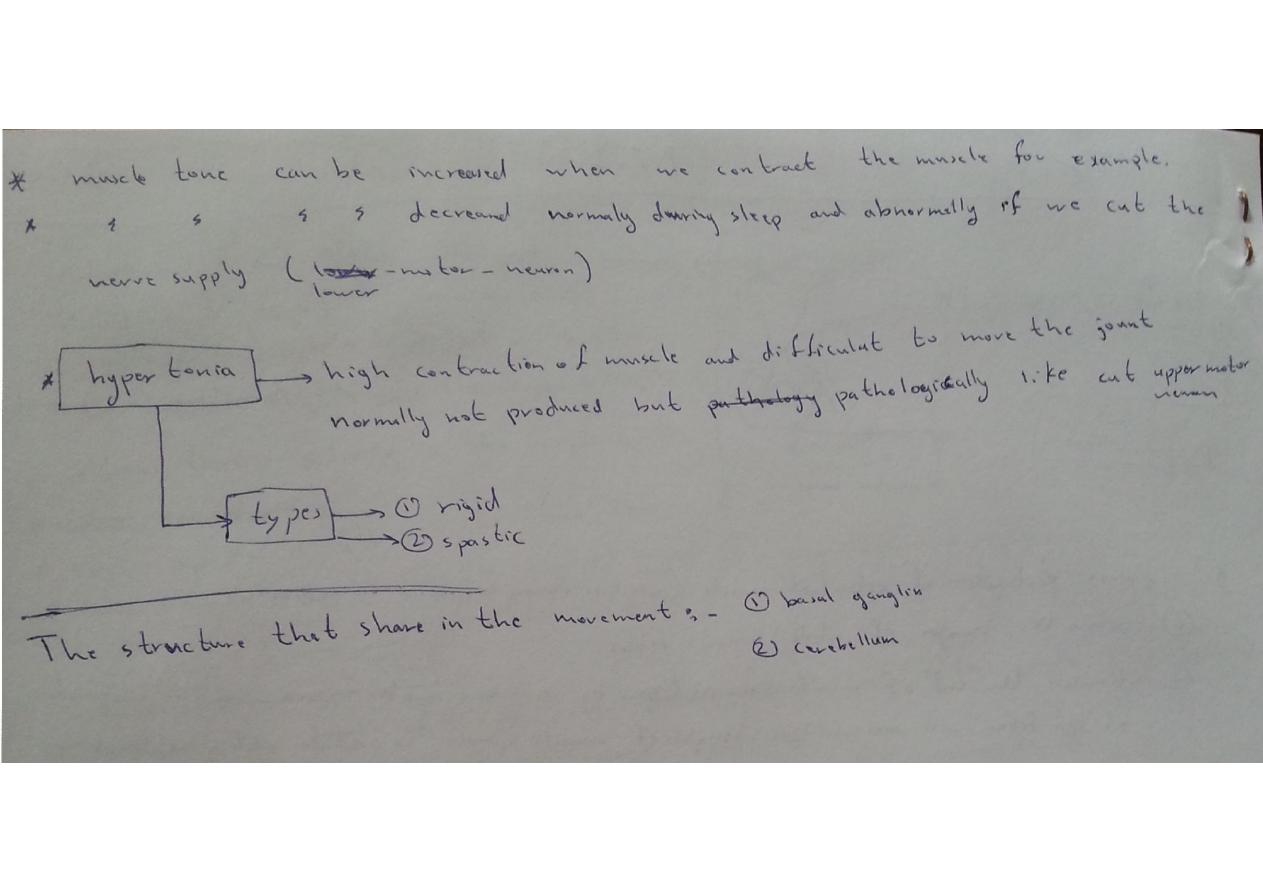 * muscle tone can be increased when we contract the muscle for example.
* " " " " decreand normaly douring sleep and abnormelly if we cut the
nerve supply ( -motor-neuron)
lower
* hypertonia → high contraction of muscle and difficulut to move the jount
normally not produced but pathology pathologically like cut upper motor
neuron
types → ① rigid
→ ② spastic
The structure that share in the movement :- ① basal ganglia
② cerebellum